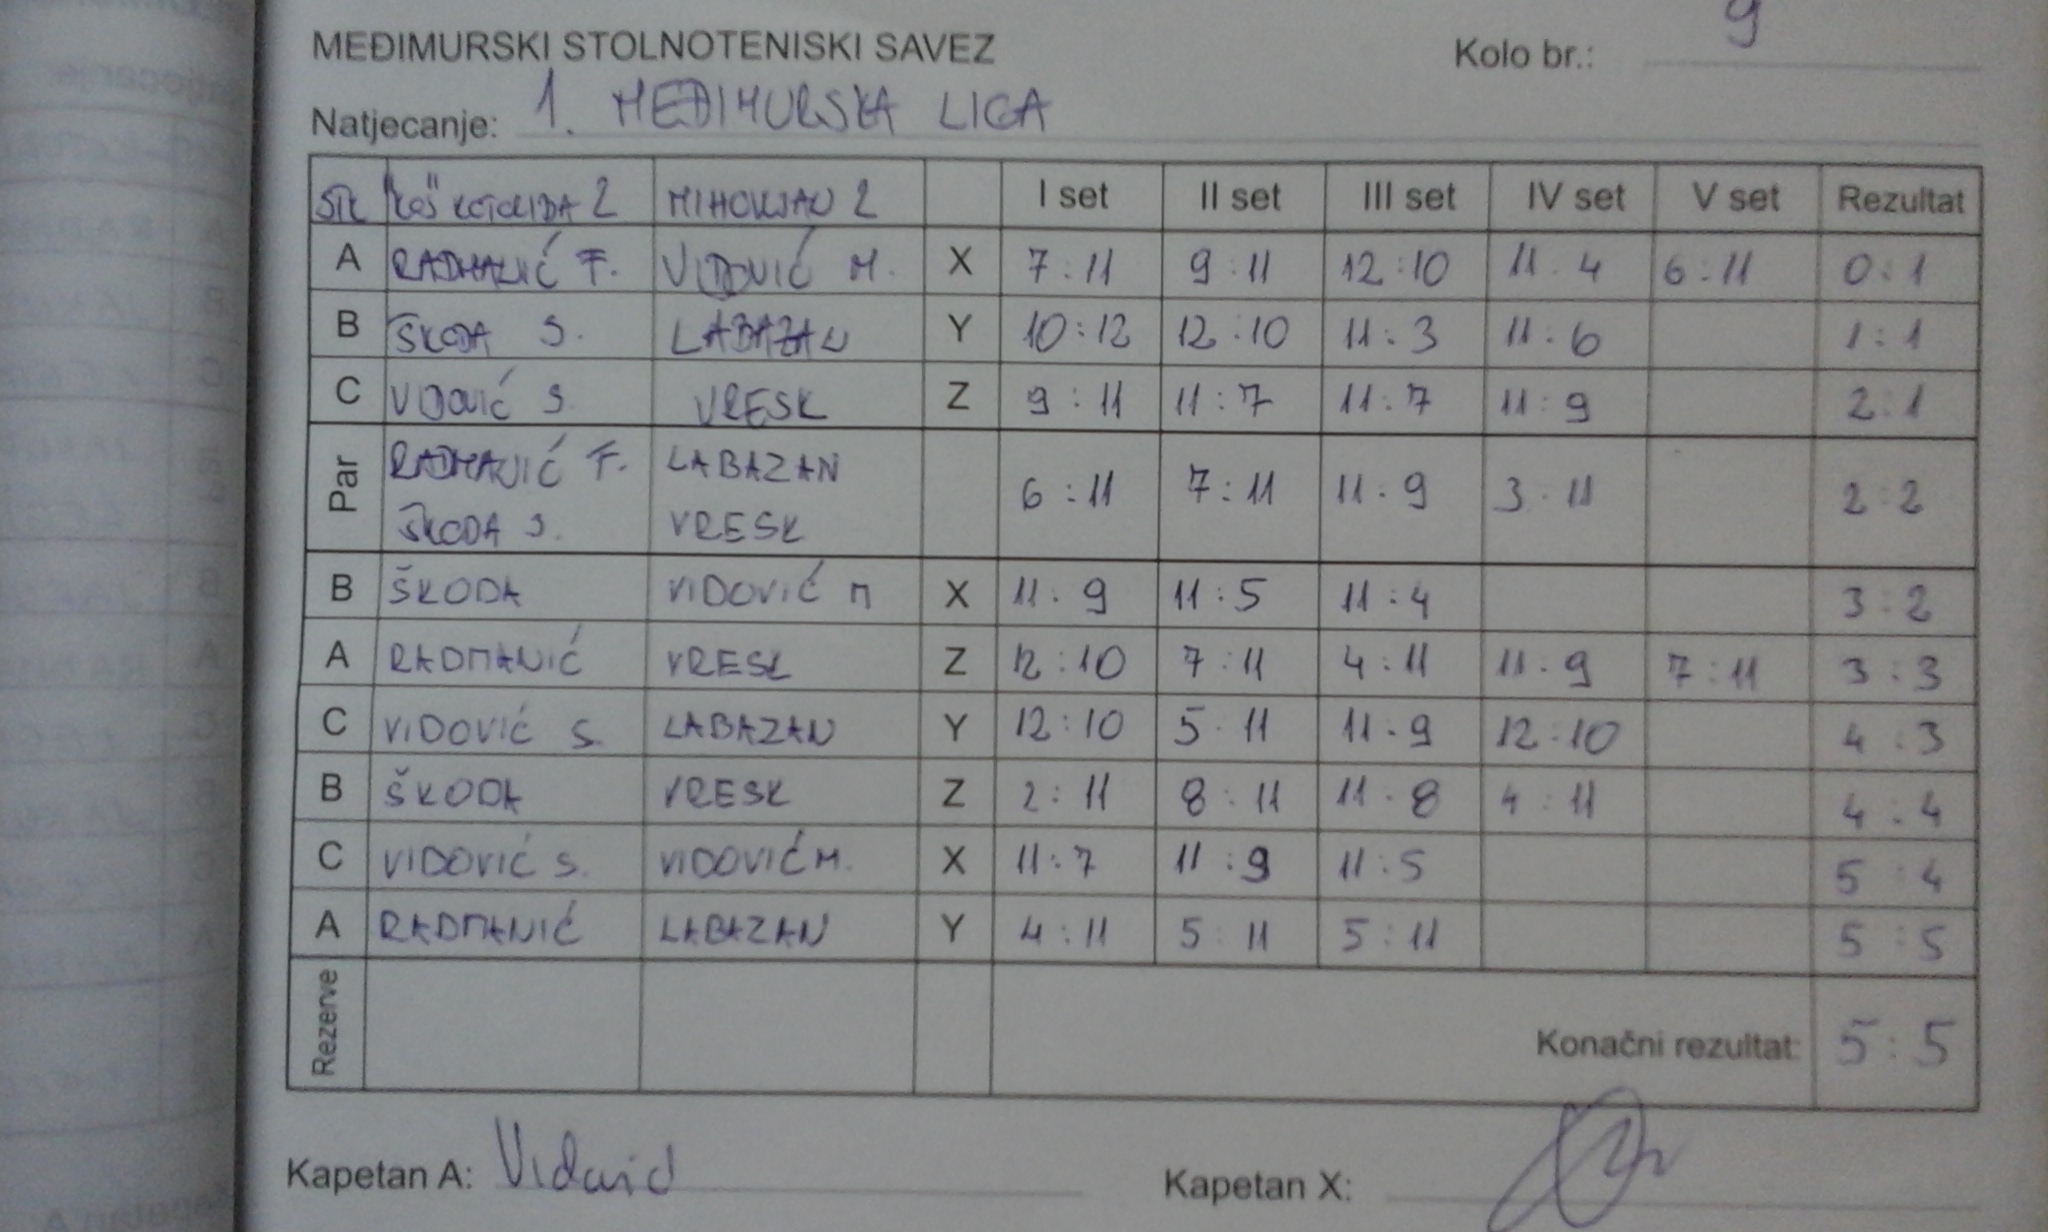 MEĐIMURSKI STOLNOTENISKI SAVEZ Kolo br.: 9
Natjecanje: 1. MEĐIMURSKA LIGA
STK "KOŠ" KOTORIBA 2 MIHOVLJAN 2 I set II set III set IV set V set Rezultat
A RADMANIĆ F. VIDOVIĆ M. X 7:11 9:11 12:10 11:4 6:11 0:1
B ŠKODA S. LABAZAN Y 10:12 12:10 11:3 11:6 1:1
C VIDOVIĆ S. VRESK Z 9:11 11:7 11:7 11:9 2:1
Par RADMANIĆ F. LABAZAN 6:11 7:11 11:9 3:11 2:2
ŠKODA S. VRESK
B ŠKODA VIDOVIĆ M X 11:9 11:5 11:4 3:2
A RADMANIĆ VRESK Z 12:10 7:11 4:11 11:9 7:11 3:3
C VIDOVIĆ S. LABAZAN Y 12:10 5:11 11:9 12:10 4:3
B ŠKODA VRESK Z 2:11 8:11 11:8 4:11 4:4
C VIDOVIĆ S. VIDOVIĆ M. X 11:7 11:9 11:5 5:4
A RADMANIĆ LABAZAN Y 4:11 5:11 5:11 5:5
Rezerve Konačni rezultat: 5:5
Kapetan A: Vidović Kapetan X: